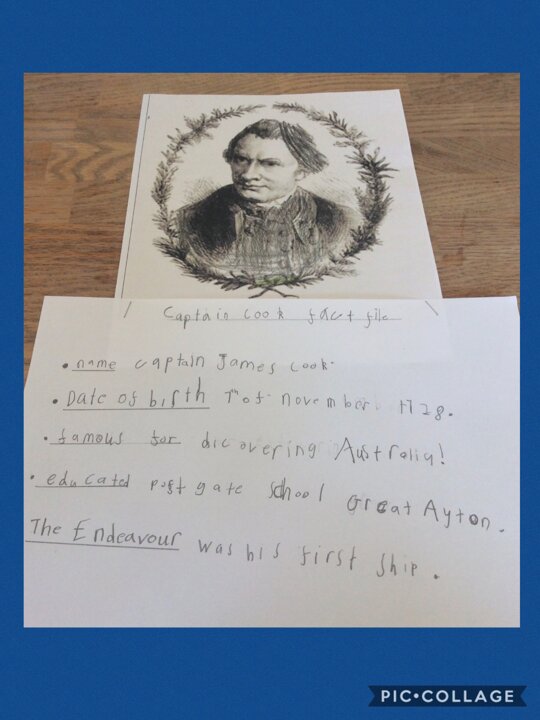 Captain Cook fact file
• name Captain James Cook.
• Date of birth 7th of november. 1728.
• famous for dicovering Australia!
• educated postgate school Great Ayton.
The Endeavour was his first ship.
PIC•COLLAGE